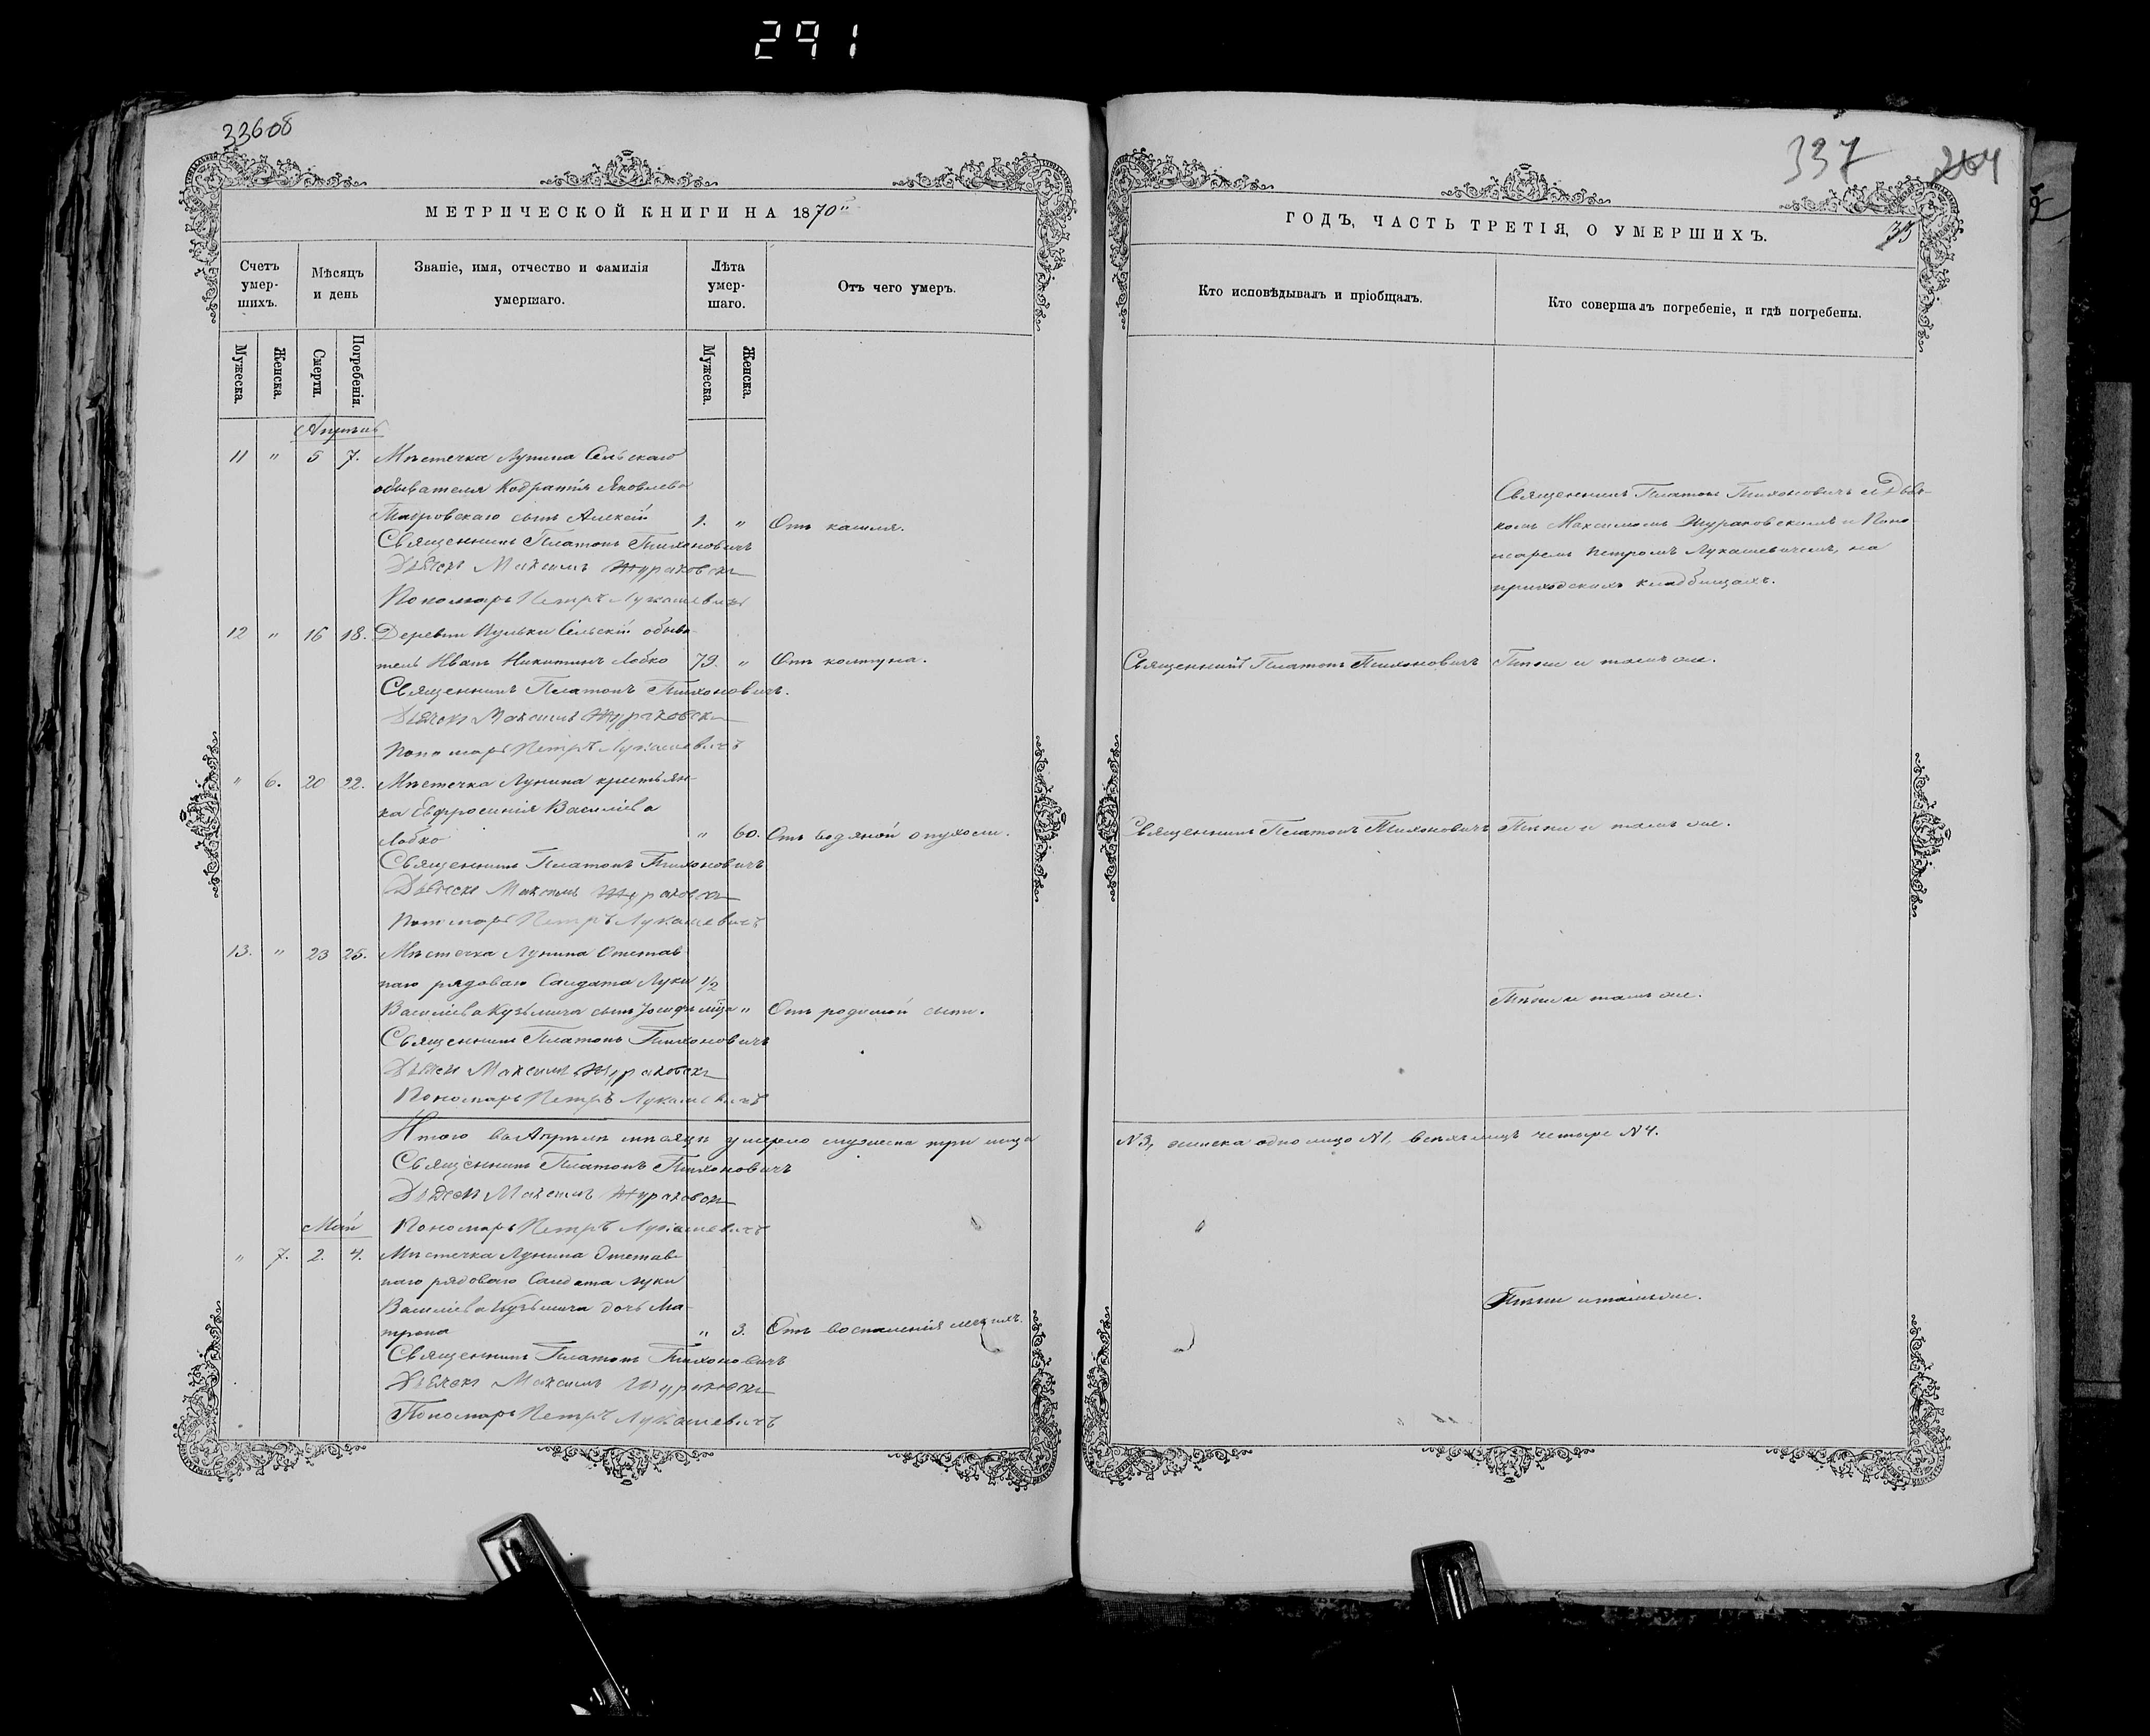 291
33608
МЕТРИЧЕСКОЙ КНИГИ НА 1870й
Счетъ умер-шихъ.
Мѣсяцъ и день
Званіе, имя, отчество и фамилія умершаго.
Лѣта умер-шаго.
Отъ чего умеръ.
Мужеска.
Женска.
Смерти.
Погребенія.
Мужеска.
Женска.
Апрѣль
11 " 5 7. Мѣстечка Лунина Сельскаго
обывателя Кодратія Яковлева
сынъ Алексѣй 1. " Отъ кашля.
Священникъ Платонъ Тихоновичъ
Дьячекъ Максимъ Жураковскій
Пономарь Петръ Лукашевичъ
12 " 16 18. Деревни Сельскій обыва-
тель Иванъ Никитинъ Лобко 79. " Отъ колтуна.
Священникъ Платонъ Тихоновичъ.
Дьячекъ Максимъ Жураковскій
Пономарь Петръ Лукашевичъ
" 6. 20 22. Мѣстечка Лунина крестьян-
ка Евфросинія Васильева
Лобко " 60. Отъ водяной опухоли.
Священникъ Платонъ Тихоновичъ
Дьячекъ Максимъ Жураковскій
Пономарь Петръ Лукашевичъ
13. " 23 25. Мѣстечка Лунина Отстав
наго рядоваго Солдата Луки 1/2
Васильева Кузьмича сынъ Іосифъ " Отъ родимой
Священникъ Платонъ Тихоновичъ
Дьячекъ Максимъ Жураковскій
Пономарь Петръ Лукашевичъ
Итого въ Апрѣлѣ мѣсяцѣ умерло мужеска три лица
Священникъ Платонъ Тихоновичъ
Дьячекъ Максимъ Жураковскій
Май
Пономарь Петръ Лукашевичъ
" 7. 2. 4. Мѣстечка Лунина Отстав-
наго рядоваго Солдата Луки
Васильева Кузьмича дочь Ма-
трона " 3. Отъ воспаленія легкихъ.
Священникъ Платонъ Тихоновичъ
Дьячекъ Максимъ Жураковскій
Пономарь Петръ Лукашевичъ
337 264
35
ГОДЪ, ЧАСТЬ ТРЕТІЯ, О УМЕРШИХЪ.
Кто исповѣдывалъ и пріобщалъ.
Кто совершалъ погребеніе, и гдѣ погребены.
Священникъ Платонъ Тихоновичъ съ Дьяч-
комъ Максимомъ Жураковскимъ и Поно
маремъ Петромъ Лукашевичемъ, на
приходскихъ кладбищахъ.
Священникъ Платонъ Тихоновичъ Тѣже и тамъ же.
Священникъ Платонъ Тихоновичъ Тѣже и тамъ же.
Тѣже и тамъ же.
N 3, женска одно лицо N 1, всѣхъ лицъ четыре N 4.
Тѣже и тамъ же.